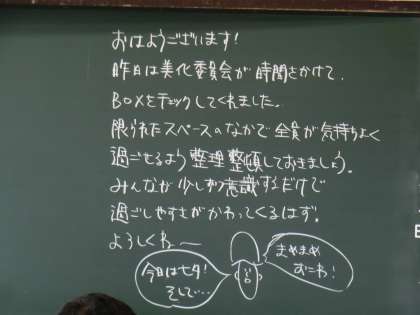 おはようございます!
昨日は美化委員会が時間をかけて、
BOXをチェックしてくれました。
限られたスペースのなかで全員が気持ちよく
過ごせるよう整理整頓しておきましょう。
みんなが少しずつ意識するだけで
過ごしやすさがかわってくるはず。
よろしくね〜
今日は七夕!
そして…
まめまめ
おにわ!